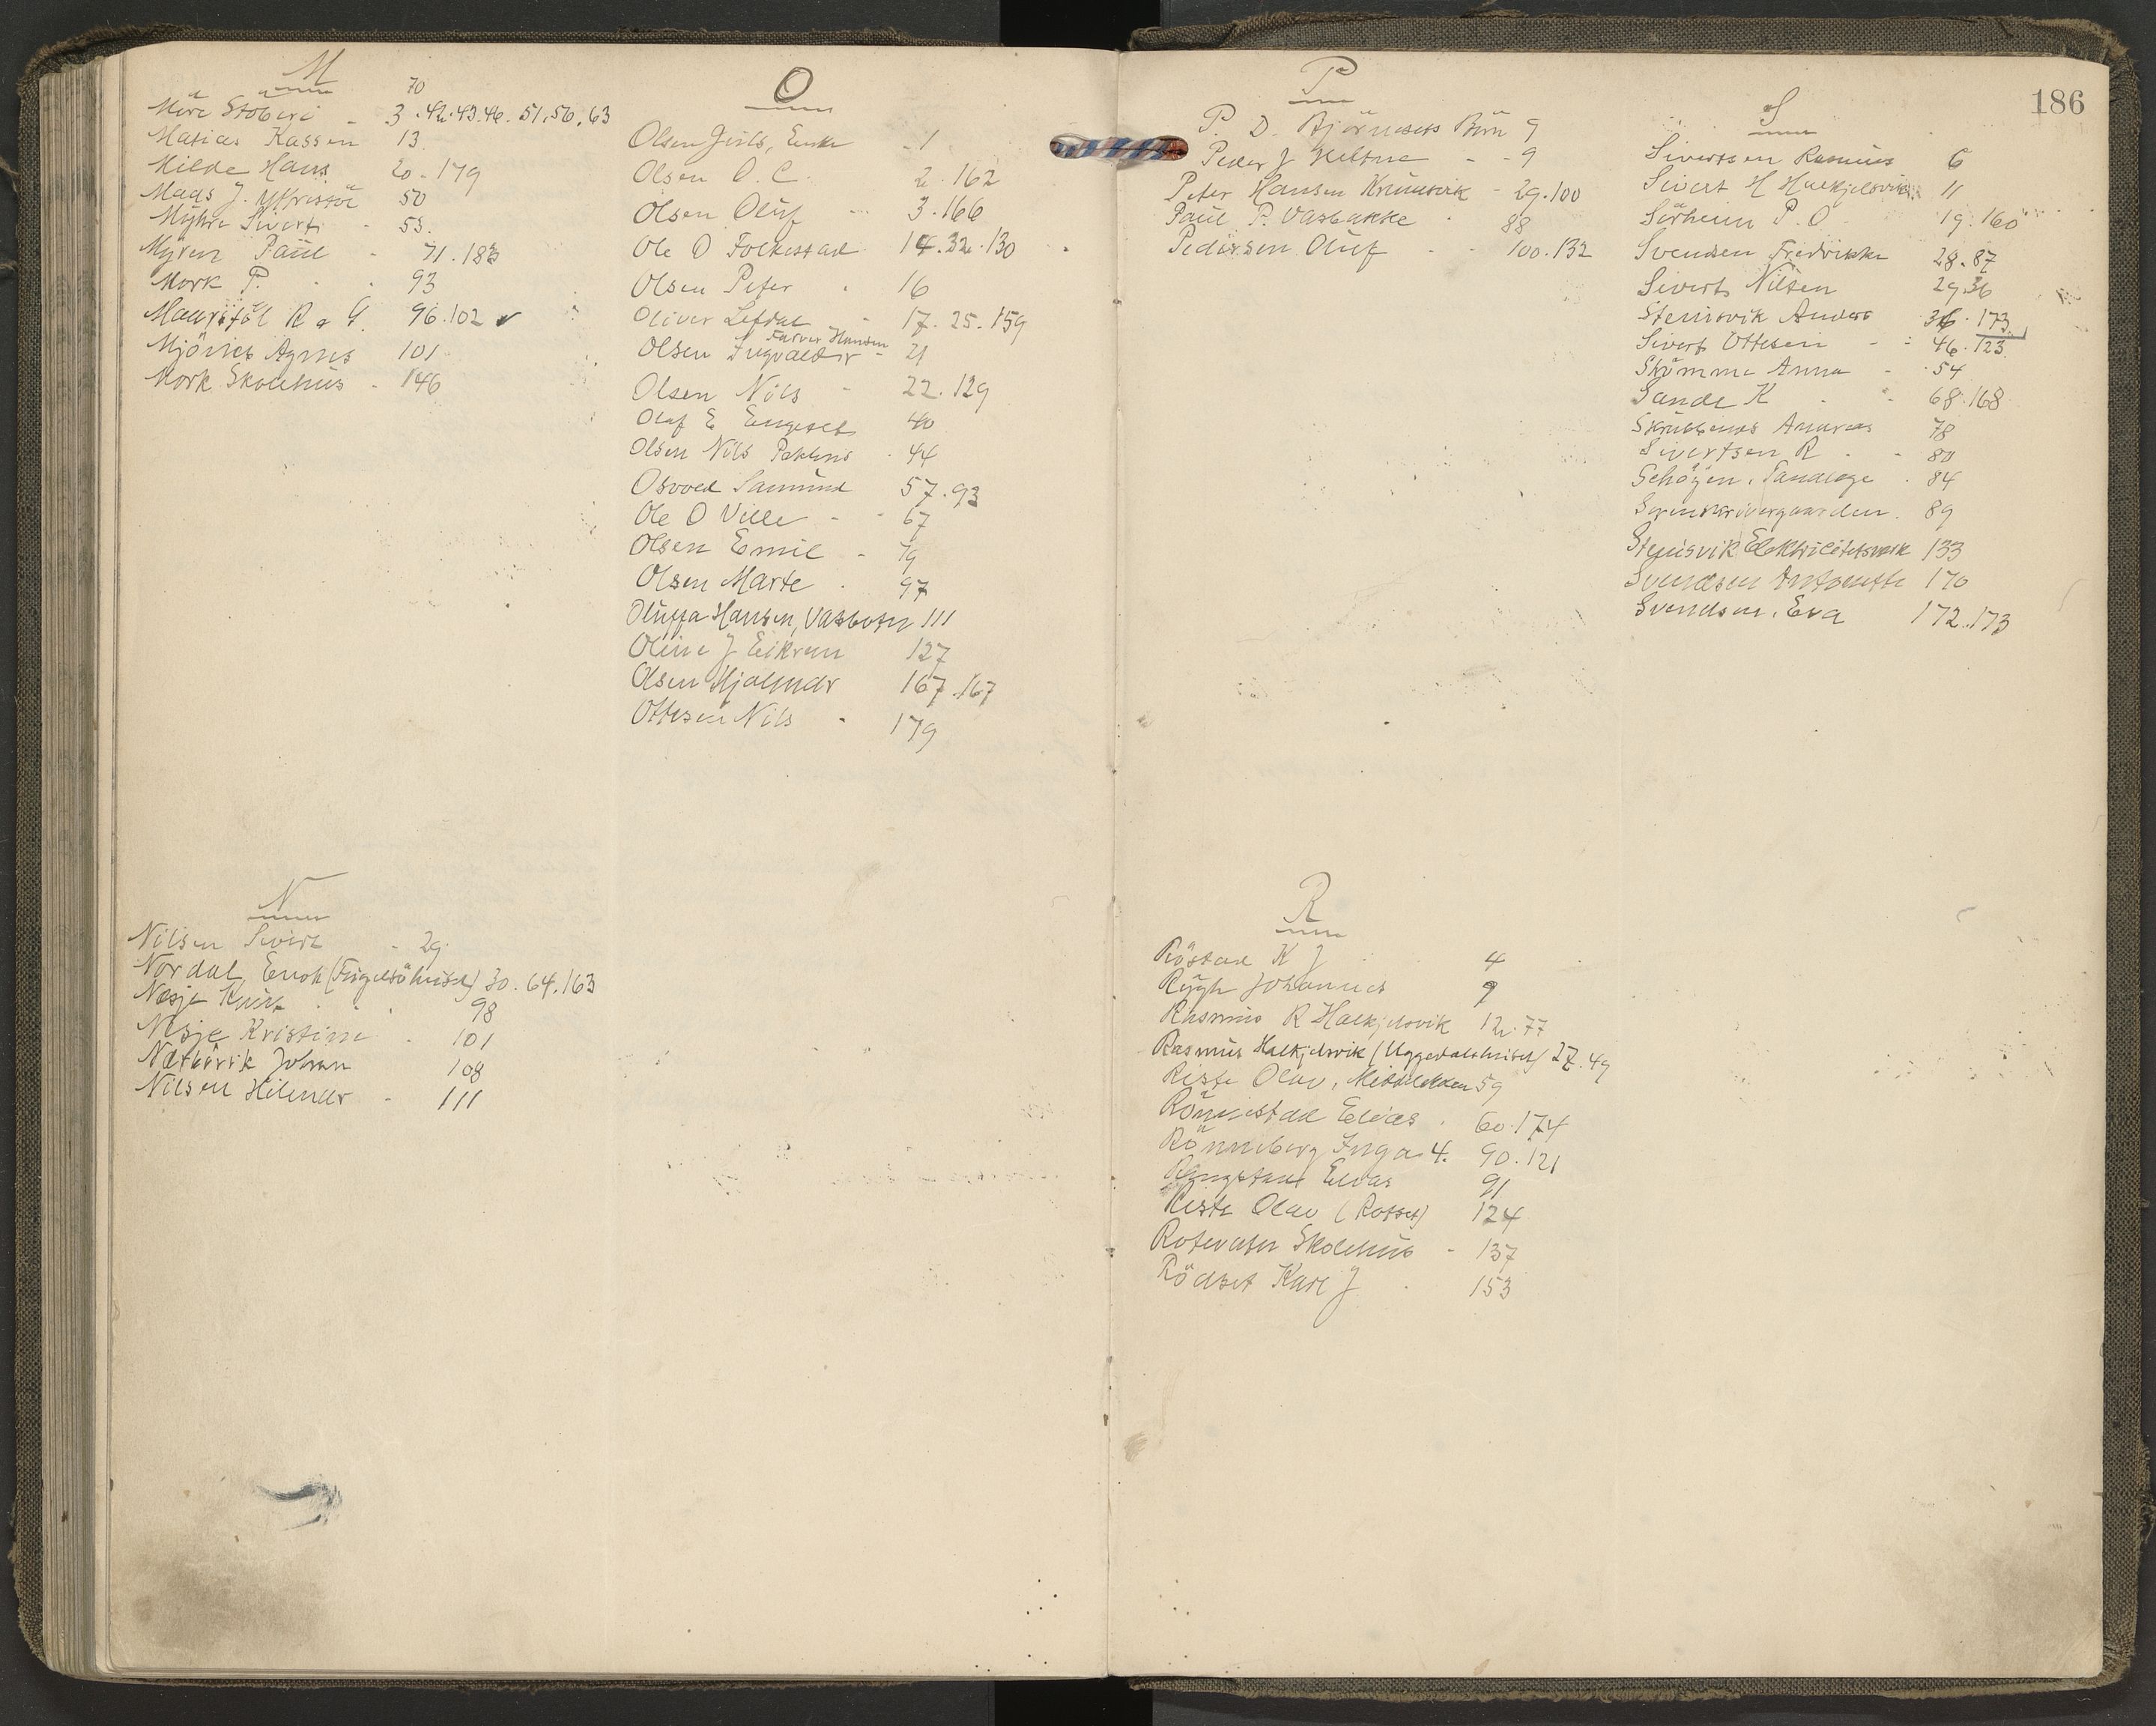 M
70
Møre Støberi - 3.42.43.46.51.56.63
Matias Kassen 13
Milde Hans 20-179
Mads J. 50
Myhre Sivert - 53.
Myren Paul - 71.183
Mork P. 93
R & G. 96.102
Mjönes Agnes 101
Mork Skolehus - 146
N
Nilsen Sivert - 29
Nordal, Enok 30.64.163
Nesje Knut 98
Nesje Kristine 101
Johan 108
Nilsen Hilmar - 111
O
Olsen Enke - 1
Olsen O. C. 2.162
Olsen Oluf - 3.166
Ole O Folkestad 14.32.130
Olsen Peter 16
Oliver Lefdal - 17.25.159
Farver Hansen
Olsen Ingvald - 21
Olsen Nils - 22.129
Olaf E Engeset 40
Olsen Nils 44
Osvold Samund 57.93
Ole O Velle - - 67
Olsen Emil - 79
Olsen Marte 97
Oluffa Hansen, Vatsboten 111
Oline J Eikrem 127
Olsen Hjalmar 167.167
Ottesen Nils - 179
P
P. D. Björnesets Börn 9
Peder J - - 9
Peter Hansen Krumsvik - 29.100
Paul P. Vasbakke 88
Pedersen Oluf - - 100.132
R
Röstad K J 4
Rygh Johannes 9
Rasmus R Halkjelsvik 12.77
Rasmus Halkjelsvik (Uggedalshuset) 27.49
Riste Olav, 59
Elias 60.174
Rönneberg Inga 4. 90.121
Elias 91
Riste Olav (Rotset) 124
Rotevatn Skolehus - 137
Rödset Karl J 153
186
S
Sivertsen Rasmus 6
Sivert H Halkjelsvik 11
Sörheim P. O. 19.160
Svendsen Fredrikke 28.87
Sivert Nilsen 29.36
Steinsvik Anders 36.173
Sivert Ottesen - - 46.123
Anna - 54
Sande K 68.168
Andreas 78
Sivertsen R - - 80
Schöyen. 84
Sorenskrivergaarden. 89
Steinsvik Elektricitetsverk 133
Svendsen Antonette 170
Svendsen, Eva 172.173